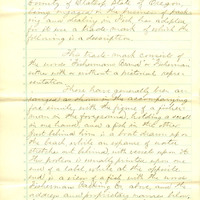 County of Clatsop State of Oregon,
being engaged in the business of pack-
ing and dealing in Fish, has adopted
for its use a trade-mark of which the
following is a description.
The trade-mark consists of
the words "Fisherman's Brand" or Fisherman
either with or without a material repre-
sentation.
These have generally been ar-
ranged as shown in the accompanying
fac simile, with the figure of a fisher-
man in the foreground, holding a
in one hand and a fish in the other
just behind him is a boat drawn upon
the beach while an expanse of water
stretches out behind, with vessels upon it.
This portion is usually printed upon one
end of a label, while at the opposite
end is a view of a fish with the words
Fishermans Packing Co. above, and the
address and proprietary names below